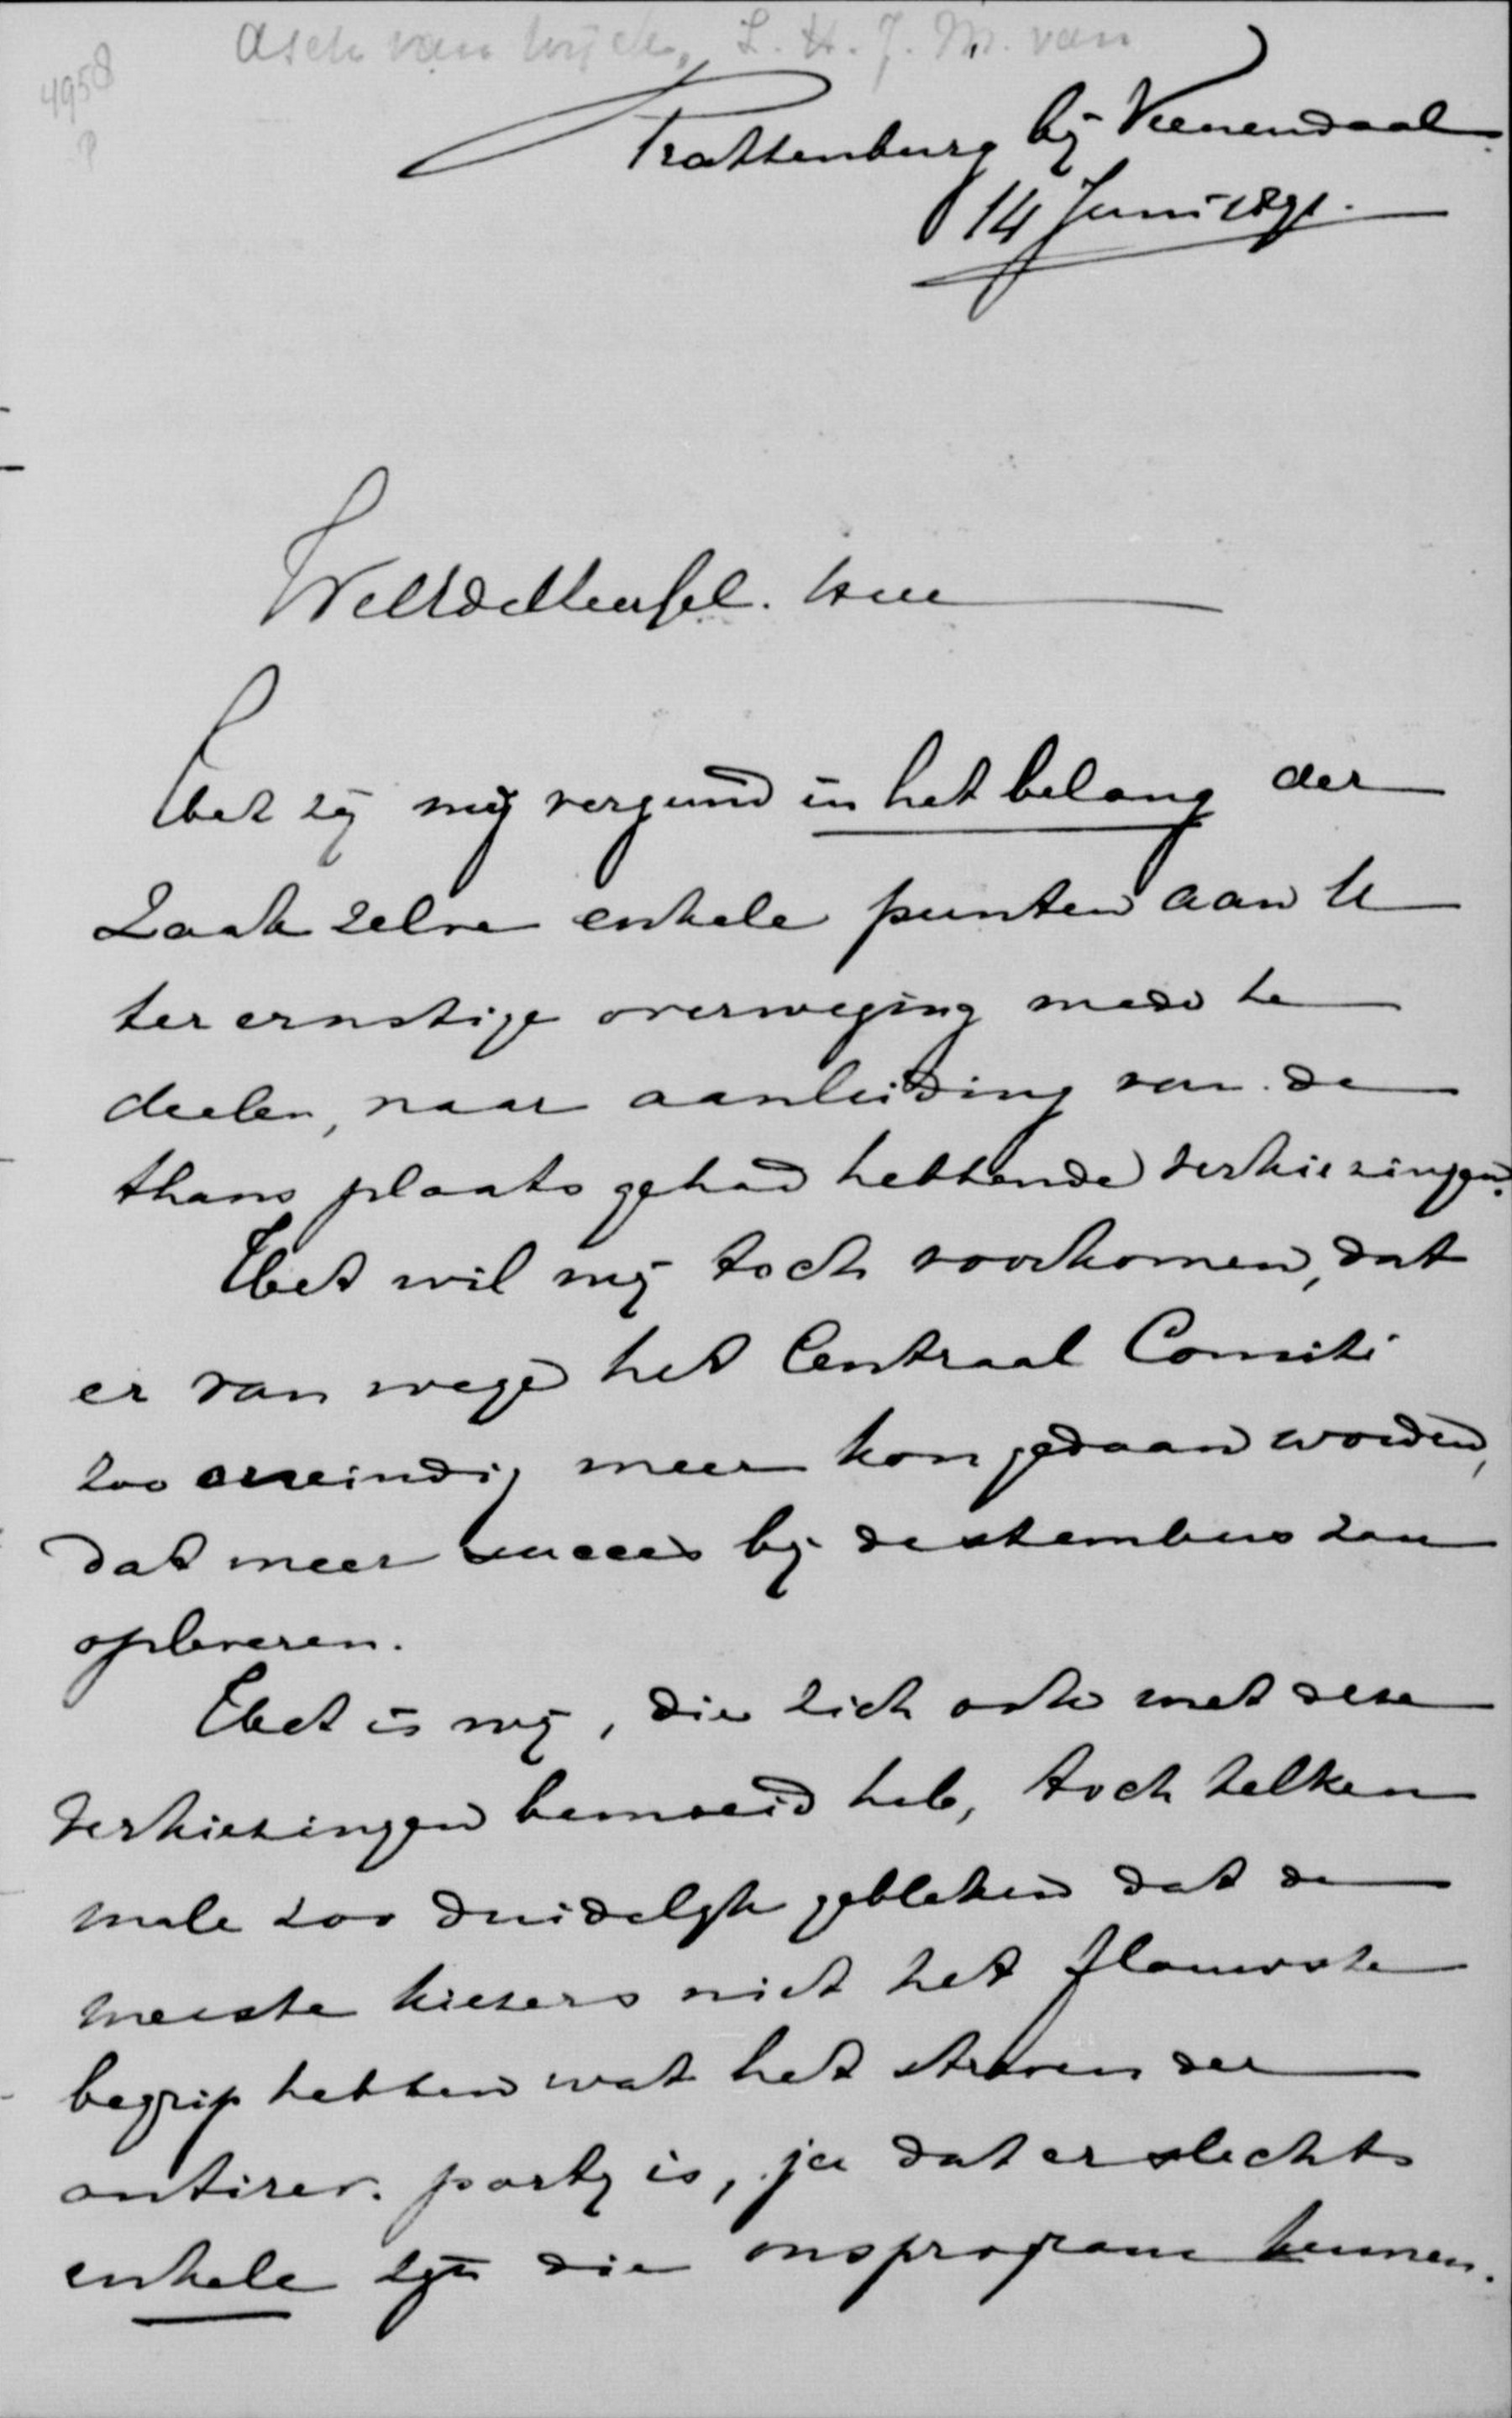 Asch van Wijck, L. H. J. M. van
4958
Prattenburg bij Veenendaal.
14 Juni 1891.
WelEdelHeerGel. Heer
Het zij mij vergund in het belang der
Zaak zelve enkele punten aan U
ter ernstige overweging mede te
deelen, naar aanleiding van de
thans plaats gehad hebbende verkiezingen.
Het wil mij toch voorkomen, dat
er van wege het Centraal Comité
zoo oneindig meer kon gedaan worden,
dat meer succes bij de stembus zou
opleveren.
Het is mij, die zich ook met deze
verkiezingen bemoeid heb, toch telken
male zoo duidelijk gebleken dat de
meeste kiezers niet het flauwste
begrip hebben wat het streven der
antirev. partij is, ja dat er slechts
enkele zijn die ons program kennen.